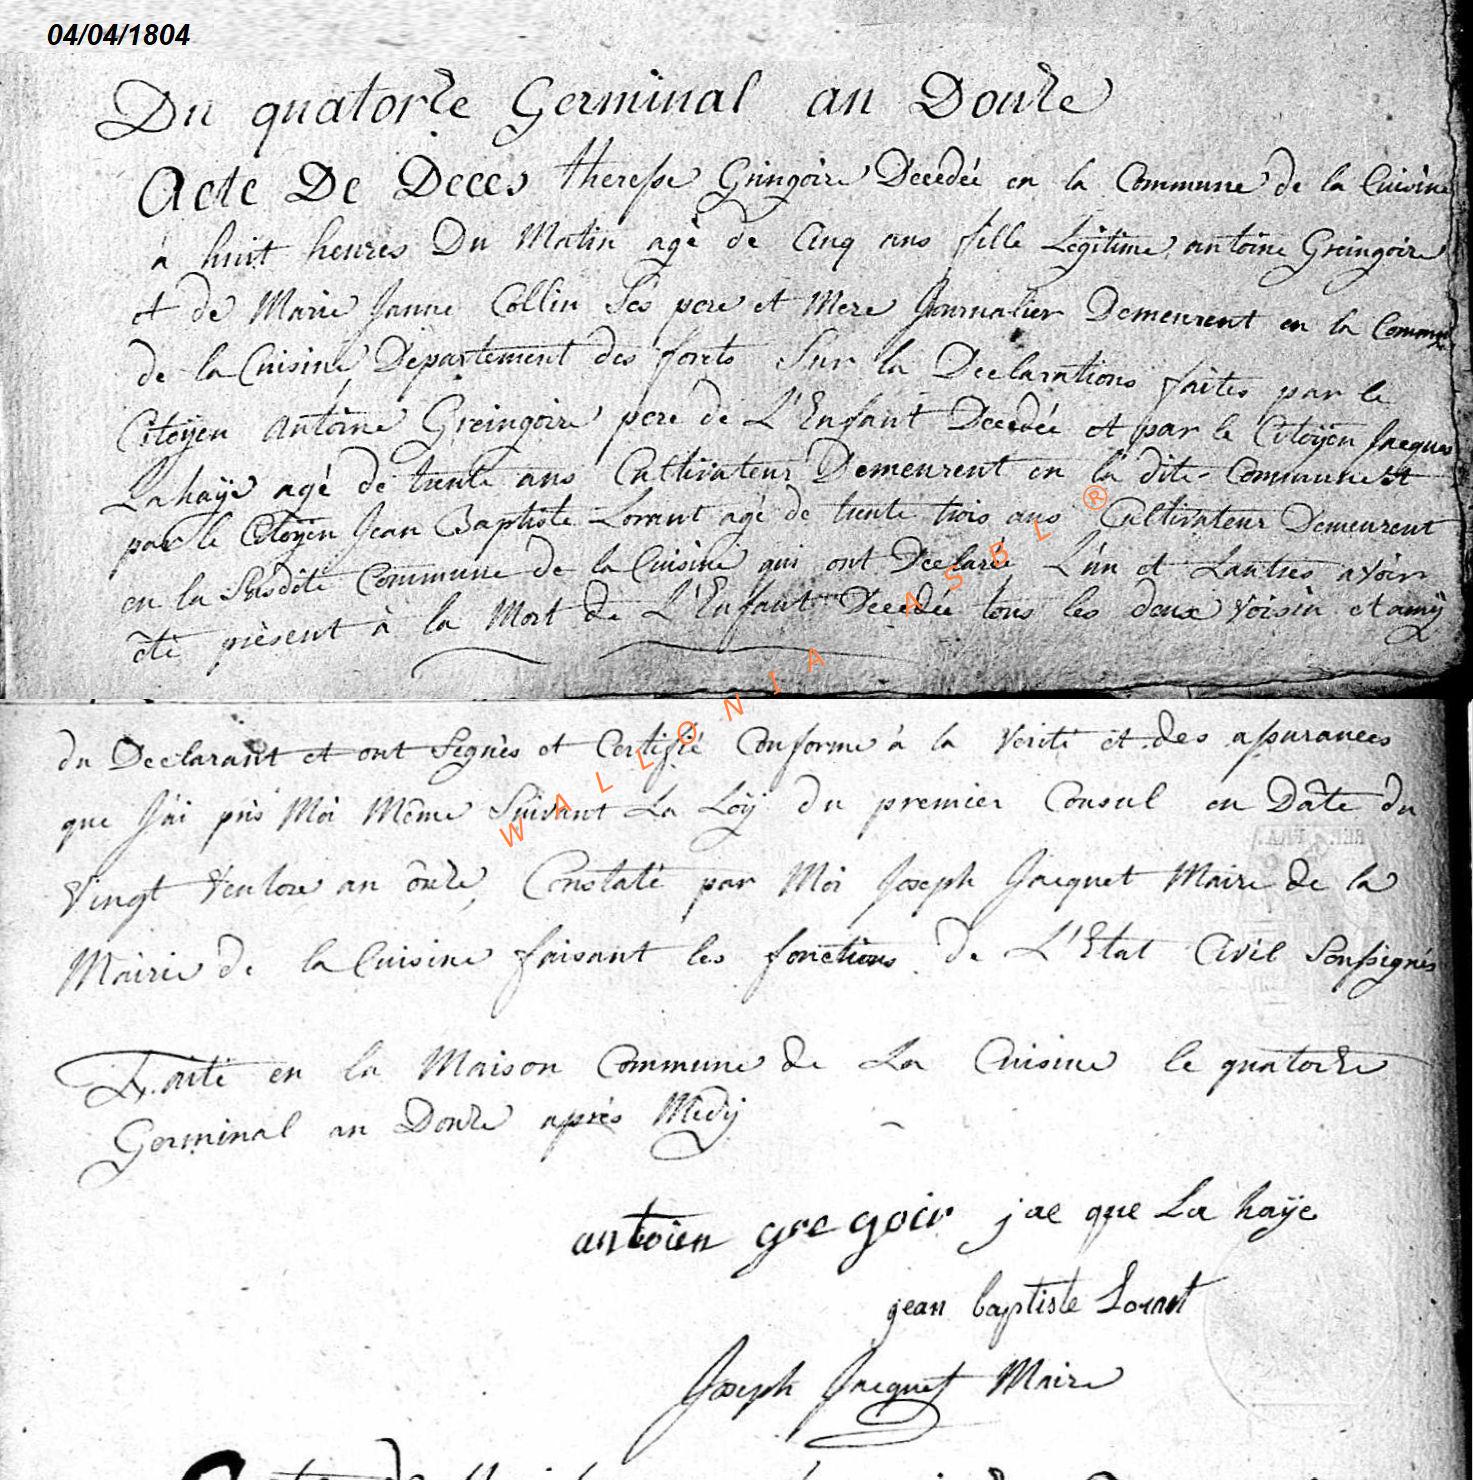 04/04/1804
Du quatorze Germinal an Douze
Acte De Deces therese Gringoire Decedée en la Commune de la Cuisine
à huit heures Du Matin agé de Cinq ans fille Legitime antoine Greingoire
et de Marie Janne Collin Ses pere et Mere Journalier Demeurent en la Commune
de la Cuisine Departement des forets Sur la Declarations faites par le
Citoyen Antoine Greingoire pere de L'Enfant Decedée et par le Citoyen Jacques
Lahaÿe agé de trente ans Cultivateur Demeurent en la dite Commune et
par le Citoÿen Jean Baptiste Lorant agé de trente trois ans Cultivateur Demeurent
en la Susdite Commune de la Cuisine qui ont Declarée L'un et Lautres avoir
été présent à la Mort de L'Enfant Decedée tous les deux voisin et amÿ
du Declarant et ont Segnés et Certifié Conforme à la Verité et des assurances
que J'ai pris Moi Même Suivant La Loÿ du premier Consul en Date du
Vingt Ventose an onze, Constaté par Moi Joseph Jacquet Maire de la
Mairie de la Cuisine faisant les fonctions de L'Etat Civil Soussignés
Faite en la Maison Commune de La Cuisine le quatorze
Germinal an Douze après Midÿ
antoien gregoir jac que La haÿe
jean baptiste Lorant
Joseph Jacquet Maire
WALLONIA ASBL ®